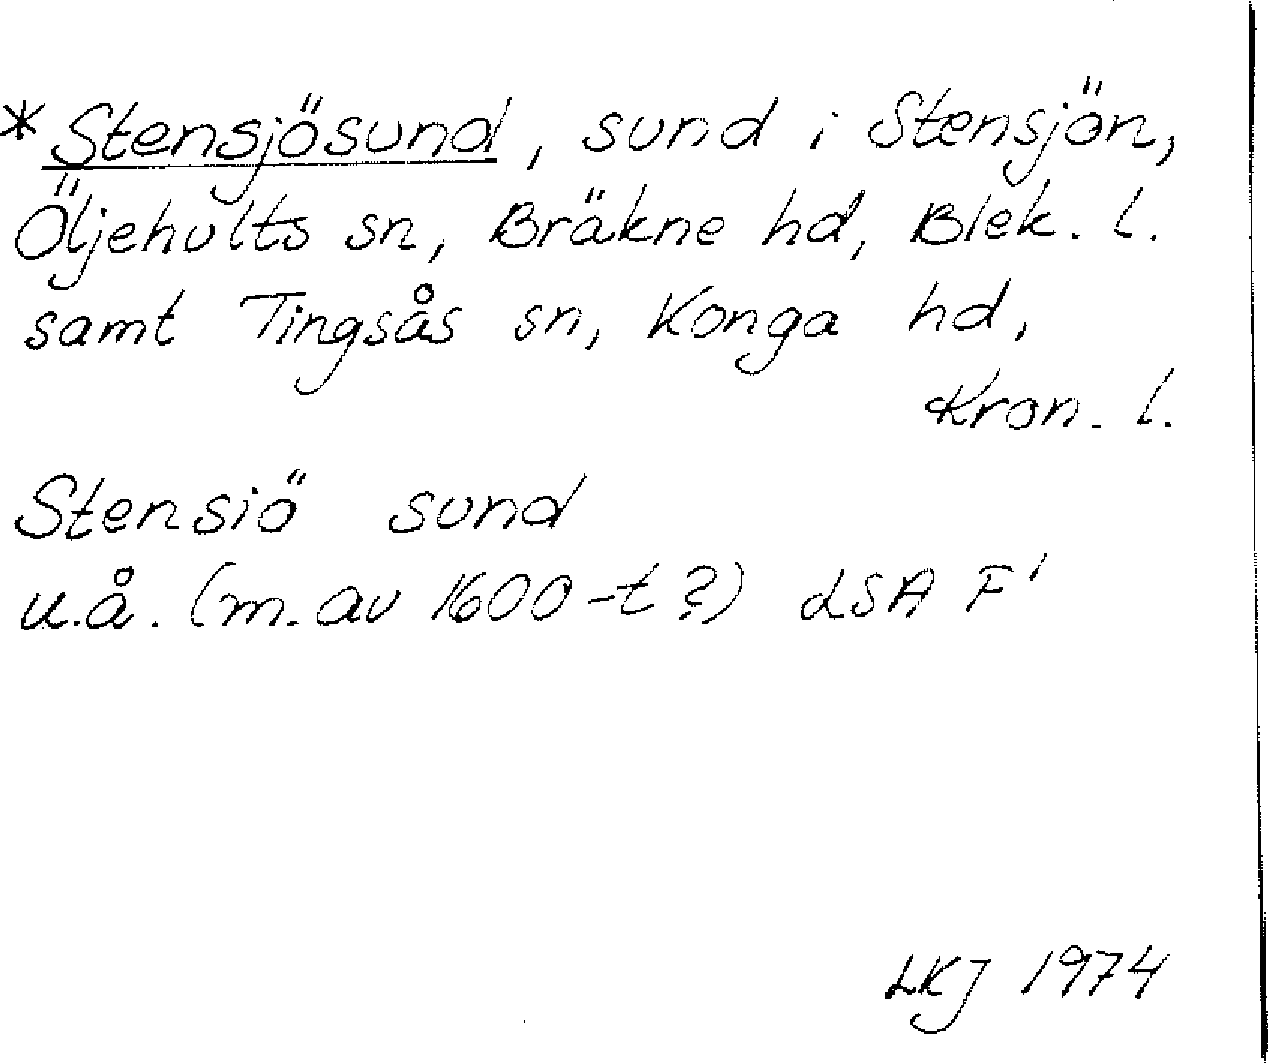 *Stensjösund, sund i Stensjön,
Öljehults sn, Bräkne hd, Blek. l.
samt Tingsås sn, Konga hd,
Kron. l.
Stensiö sund
u.å. (m. av 1600-t?) LSA F'
LKJ 1974